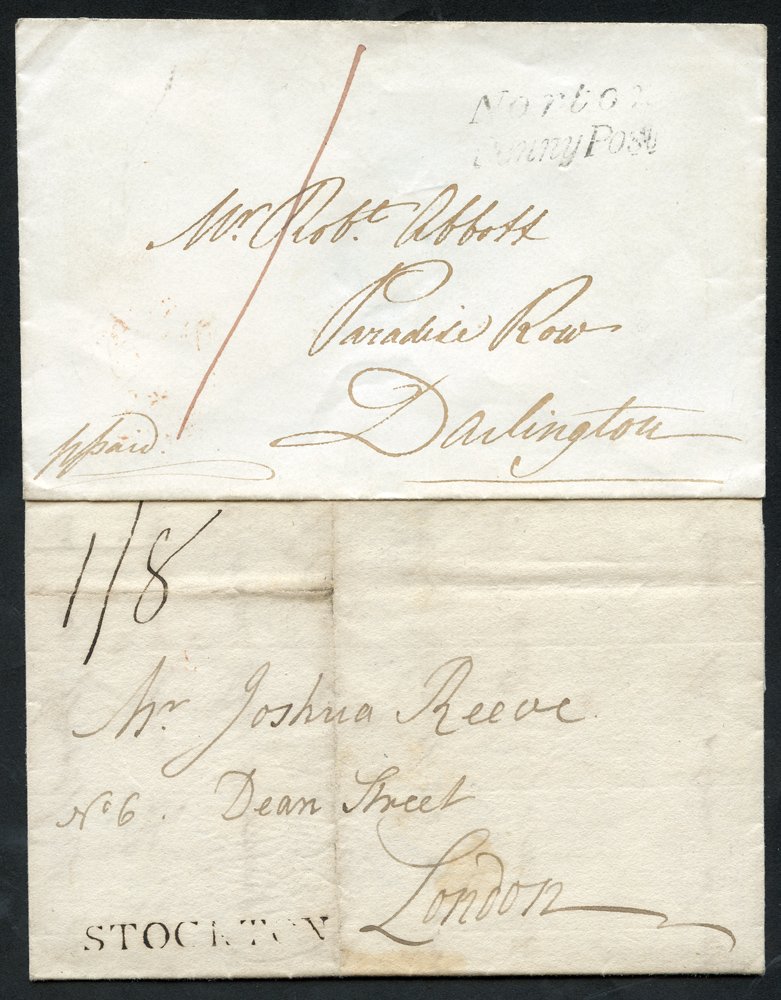 Norton
Penny Post
Mr. Robt. Abbott
Paradise Row
Darlington
ppaid.
1/8
Mr. Joshua Reeve.
No 6. Dean Street
London
STOCKTON